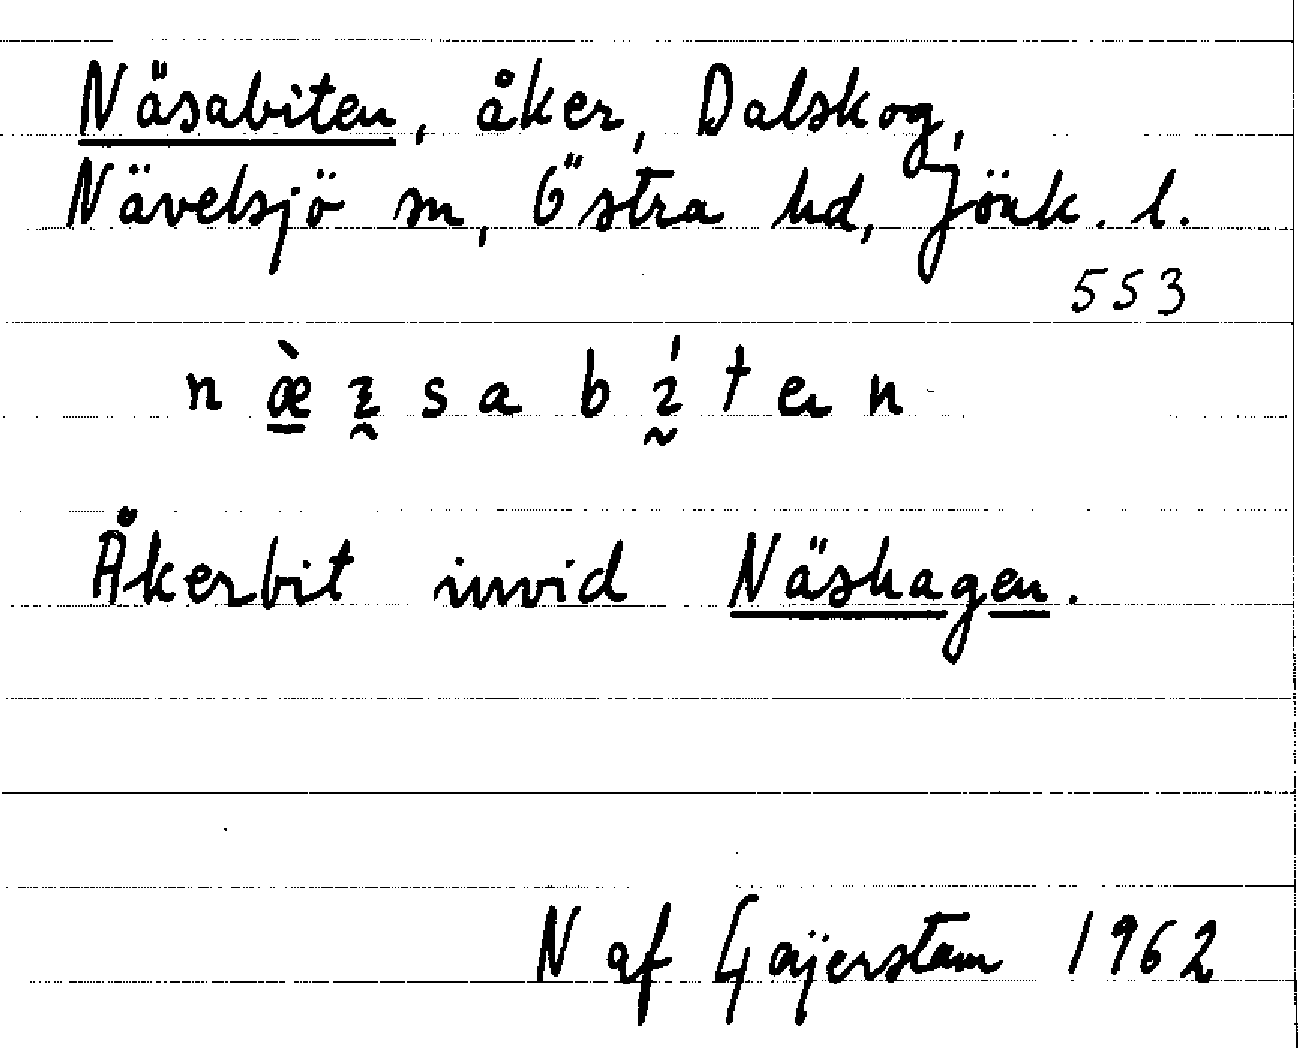 Näsabiten, åker, Dalskog,
Nävelsjö sn, Östra hd, Jönk. l.
553
Åkerbit invid Näshagen.
N af Geijerstam 1962